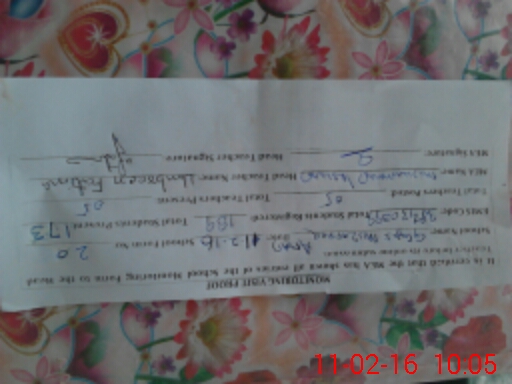 MONITORING VISIT PROOF
It is certified that the MEA has shown all entries of the School Monitoring Form to the Head
Teacher before online submission.
School Name: Date: 11-2-16 School Form No: 20
EMIS Code: Total Students Registered: 189 Students Present: 173
Total Teachers Posted: 05 Total Teachers Present: 05
MEA Name: Muhammad Head Teacher Name: Ambreen Fatima
MEA Signature: Head Teacher Signature:
11-02-16 10:05